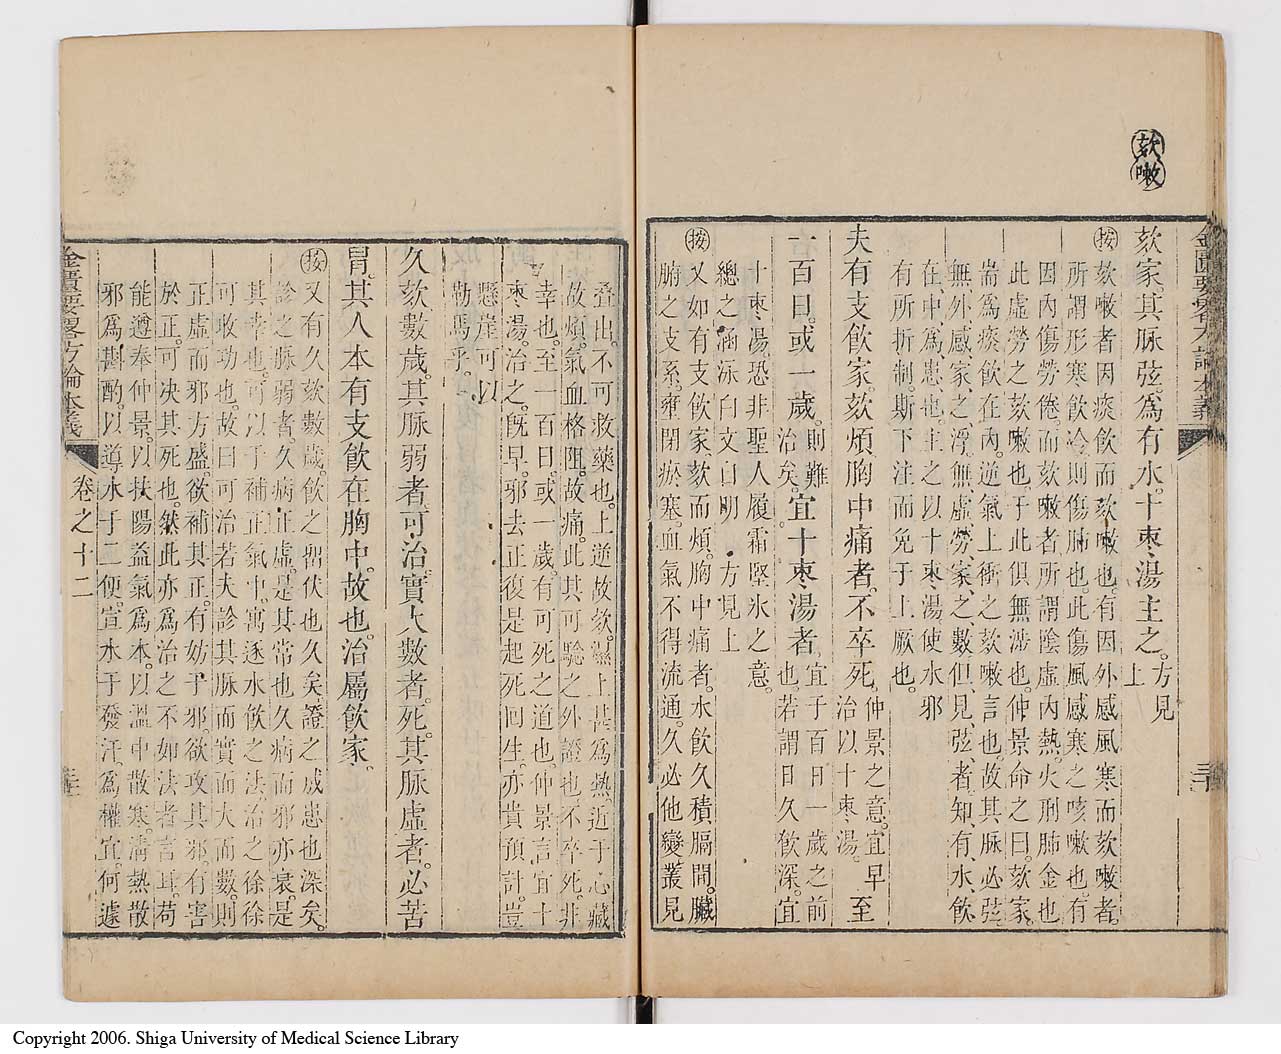 欬嗽
欬家其脉弦爲有水十棗湯主之。方見上
按欬嗽者因痰飲而欬嗽也有因外感風寒而欬嗽者。
所謂形寒飲冷則傷肺也此傷風感寒之咳嗽也有
因內傷勞倦而欬嗽者所謂陰虛內熱火刑肺金也
此虛勞之欬嗽也于此俱無涉也仲景命之曰欬家
耑爲痰飲在內逆氣上衝之欬嗽言也故其脉必弦
無外感家之浮無虛勞家之數但見弦者知有水飲
在中爲患也主之以十棗湯使水邪
有所折制斯下注而免于上厥也。
夫有支飲家欬煩胸中痛者不卒死。仲景之意宜早治以十棗湯。至
一百日或一歲。則難治矣。宜十棗湯者。宜于百日一歲之前也。若謂日久飲深宜
十棗湯恐非聖人履霜堅氷之意。
總之涵泳白文自明 方見上
按又如有支飲家欬而煩胸中痛者水飲久積膈間臟
腑之支系壅閉瘀塞血氣不得流通久必他變叢見
叠出不可救藥也上逆故欬濕上甚爲熱近于心藏
故煩氣血格阻故痛此其可驗之外證也不卒死非
幸也至一百日或一歲有可死之道也仲景言宜十
棗湯治之旣早邪去正復是起死回生亦貴預計豈
懸崖可以
勒馬乎
久欬數歲其脉弱者可治實大數者死其脉虛者必苦
冐其人本有支飲在胸中故也治屬飲家。
按又有久欬數歲飲之畱伏也久矣證之成患也深矣
診之脉弱者久病正虛是其常也久病而邪亦衰是
其幸也可以于補正氣中寓逐水飲之法治之徐徐
可收功也故曰可治若夫診其脉而實而大而數則
正虛而邪方盛欲補其正有妨于邪欲攻其邪有害
於正可决其死也然此亦爲治之不如法者言耳苟
能遵奉仲景以扶陽益氣爲本以溫中散寒淸熱散
邪爲斟酌以導水于二便宣水于發汗爲權宜何遽
金匱要畧方論本義
卷之十二
Copyright 2006. Shiga University of Medical Science Library